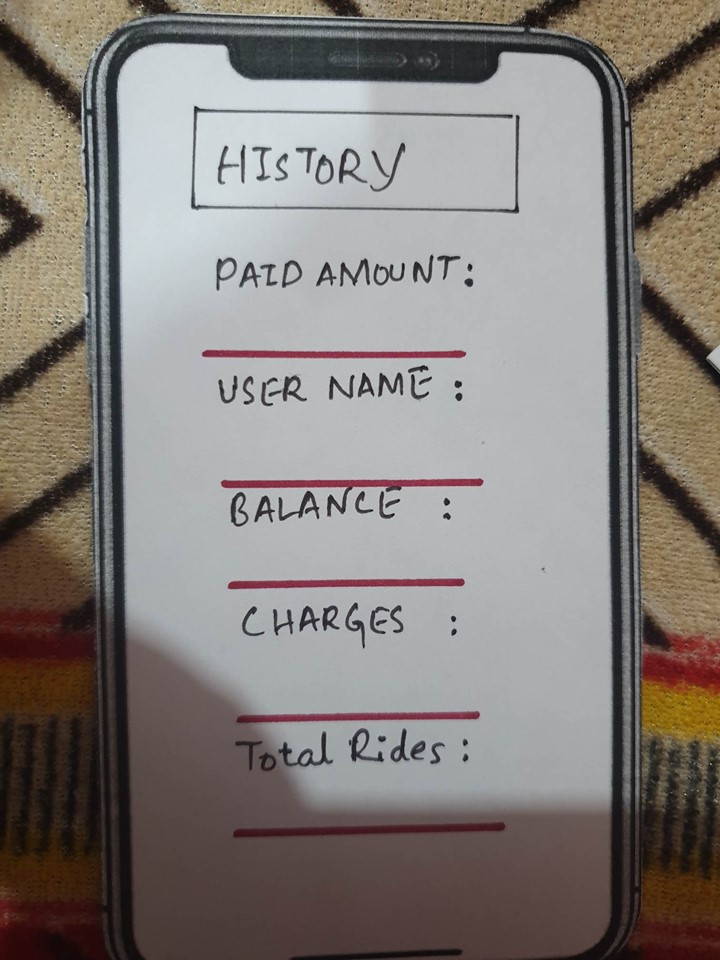 HISTORY
PAID AMOUNT:
USER NAME :
BALANCE :
CHARGES :
Total Rides :